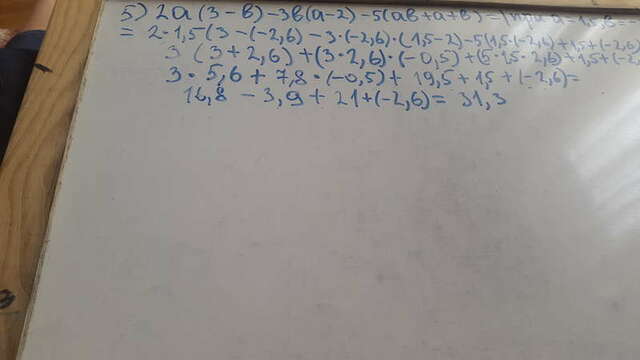 5) 2a(3-в)-3в(а-2)-5(ав+а+в)-
= 2·1,5(3-(-2,6)-3·(-2,6)·(1,5-2)-5(1,5·(-2,6)+1,5+(-2,6)
3(3+2,6)+(3·2,6)·(-0,5)+(5·1,5·2,6)+1,5+(-2,
3·5,6+7,8·(-0,5)+19,5+1,5+(-2,6)=
16,8-3,9+21+(-2,6)=31,3